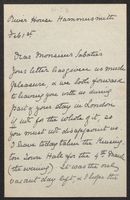 River House Hammersmith
Feb 1st
Dear Monsieur Sabatier
Your letter has given us much
pleasure, & we look forward
to having you with us during
part of your stay in London
if not for the whole of it, as
you must not disappoint us
I have today taken the Kensing
ton Town Hall for the 9th March
(the evening) It was the only
vacant day left, & I hope this